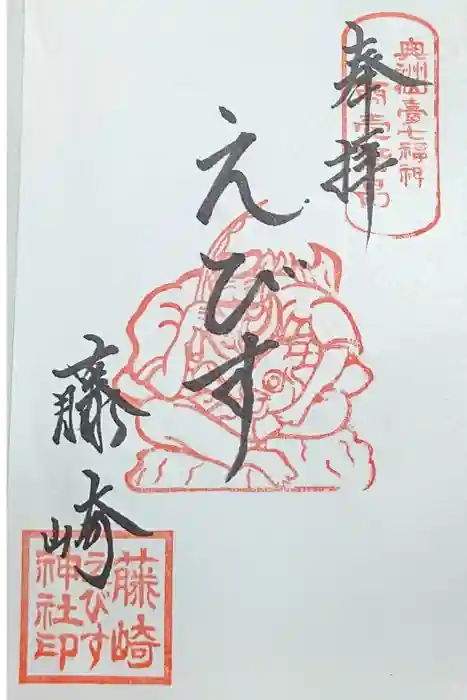 奉拝
奥州仙臺七福神
商売繁昌
えびす
藤崎
藤崎
えびす
神社印